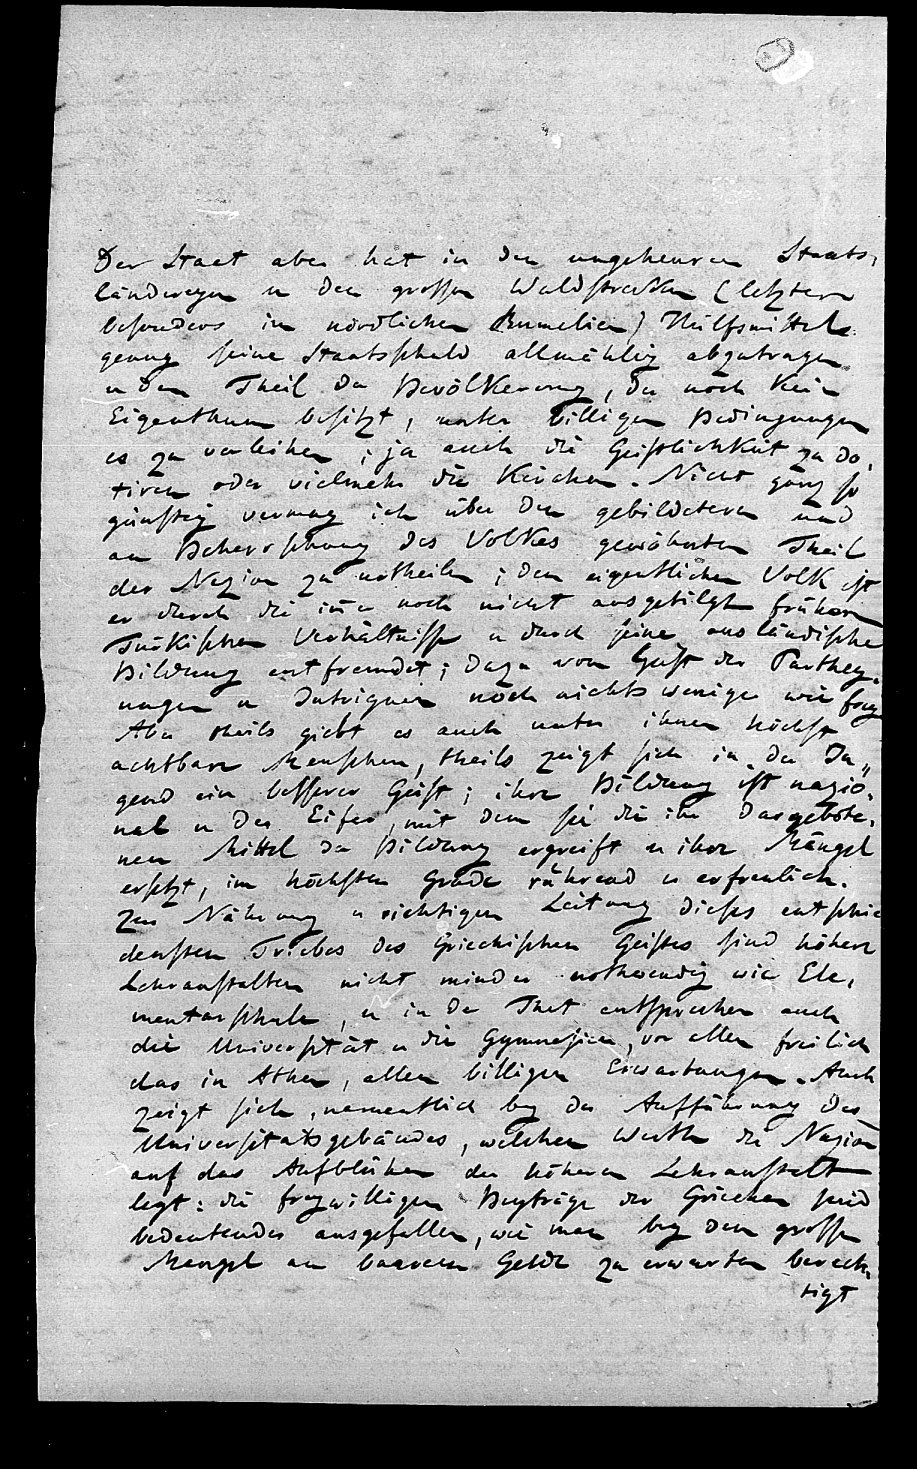 Der Staat aber hat in den ungeheuren Staats,
ländereyen u den grossen Waldstrecken (letztern
besonders im nördlichen Rumelien) Hülfsmittel
genug seine Staatsschuld allmählig abzutragen
u dem Theil der Bevölkerung, der noch kein
Eigenthum besitzt, unter billigen Bedingungen
es zu verleihen; ja auch die Geistlichkeit zu do,
tiren oder vielmehr die Kirchen. Nicht ganz so
günstig vermag ich über den gebildetern und
an Beherrschung des Volkes gewöhnten Theil
der Nazion zu urtheilen; dem eigentlichen Volk ist
er durch die im̄er noch nicht ausgetilgten frühern
Türkischen Verhältnisse u durch seine ausländische
Bildung entfremdet; dazu vom Geist der Parthey,
ungen u Intriguen noch nichts weniger wie frey
Aber theils giebt es auch unter ihnen höchst
achtbare Menschen, theils zeigt sich in der Ju,,
gend ein besserer Geist; ihre Bildung ist nazio,
nal u der Eifer, mit dem sie die ihr dargebote,
nen Mittel der Bildung ergreift u ihre Mängel
ersetzt, im höchsten Grade rührend u erfreulich.
Zur Nährung u richtigen Leitung dieses entschie
densten Triebes des Griechischen Geistes sind höhere
Lehranstalten nicht minder nothwendig wie Ele,
mentarschulen, u in der That entsprechen auch
die Universität u die Gymnasien, vor allen freilich
das in Athen, allen billigen Erwartungen. Auch
zeigt sich, namentlich bey der Aufführung des
Universitätsgebäudes, welchen Werth die Nazion
auf das Aufblühen der höheren Lehranstalt
legt: die freywilligen Beyträge der Griechen sind
bedeutender ausgefallen, wie man bey dem grossen
Mangel an baarem Gelde zu erwarten berech,
tigt